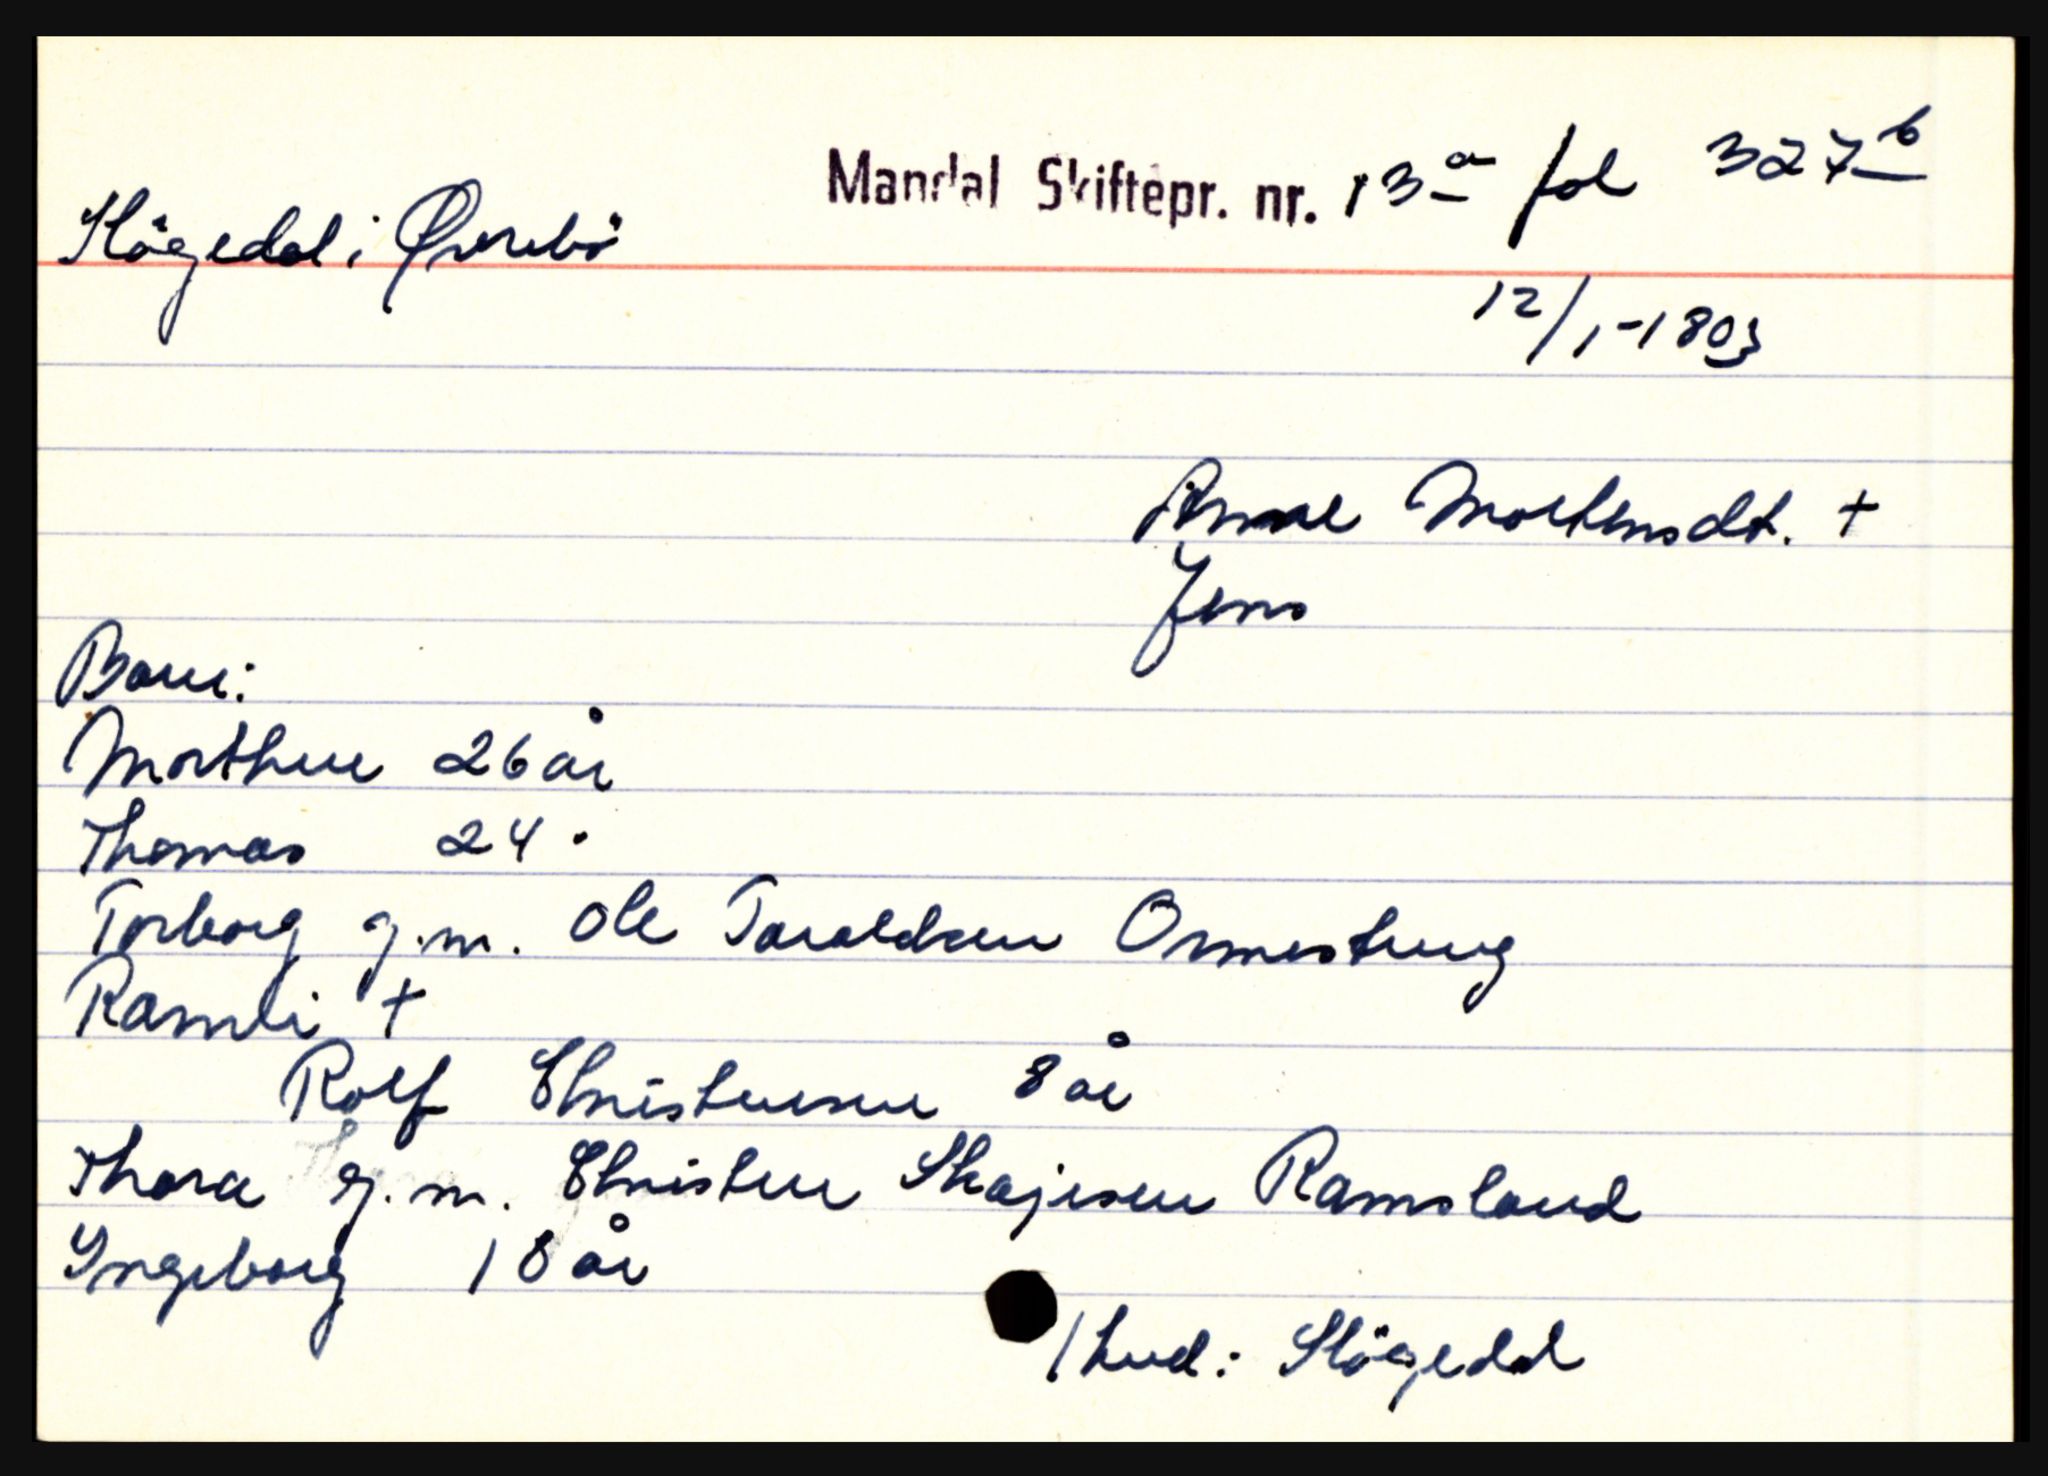 Mandal Skiftepr. nr. 13a fol 327b
Slögedal i Øvrebö
12/1-1803
Anne Mortensdt. +
Jens
Barn:
Morthen 26 år
Thomas 24 "
Torborg g.m. Ole Taraldsen Ormestrug
Ramli +
Rolf Christensen 8 år
Thora g.m. Christen Skajesen Ramsland
Yngeborg 18 år
1 hud: Slögedal